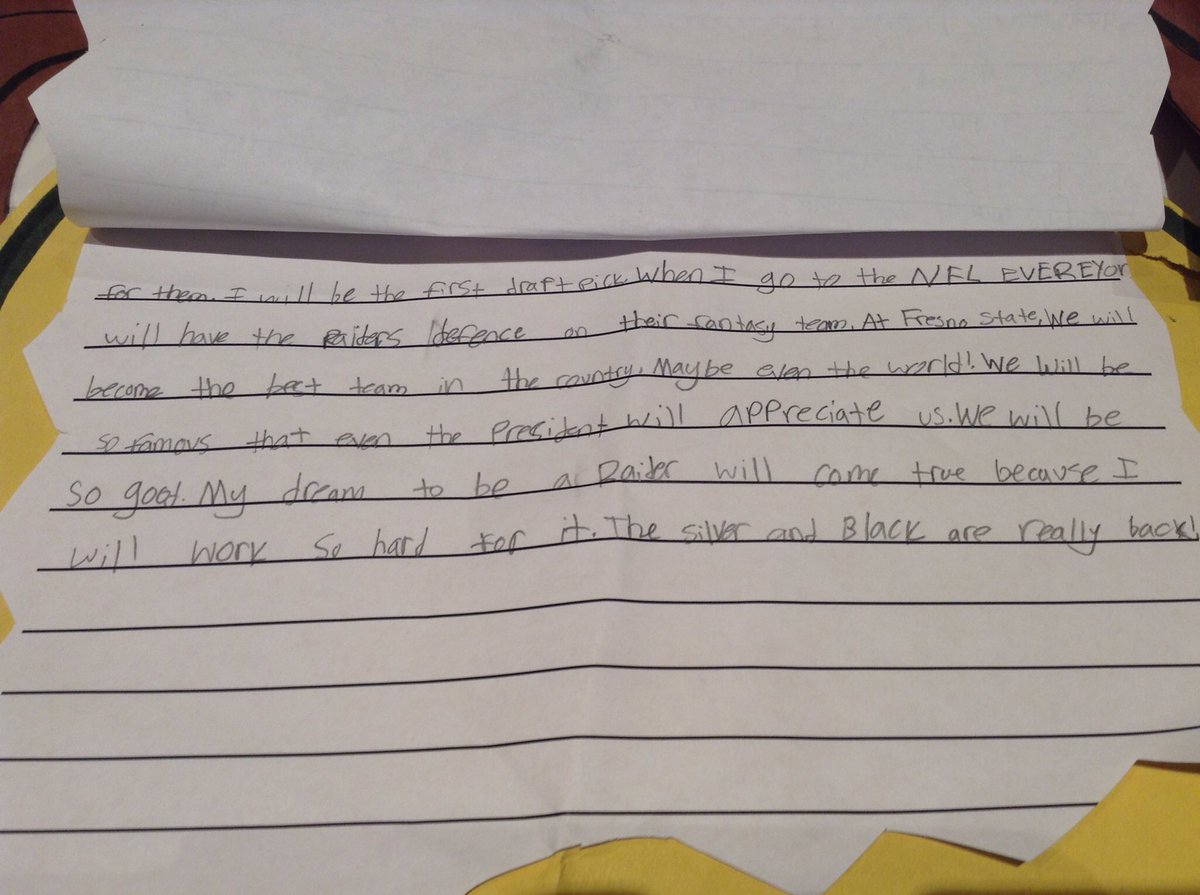 for them. I will be the first draft pick. When I go to the NFL EVEREYon
will have the Raiders defence on their fantasy team. At Fresno State, We will
become the best team in the country. Maybe even the world! We Will be
so famous that even the President will appreciate us. We will be
so good. My dream to be a Raider will come true because I
will work so hard for it. The silver and Black are really back!